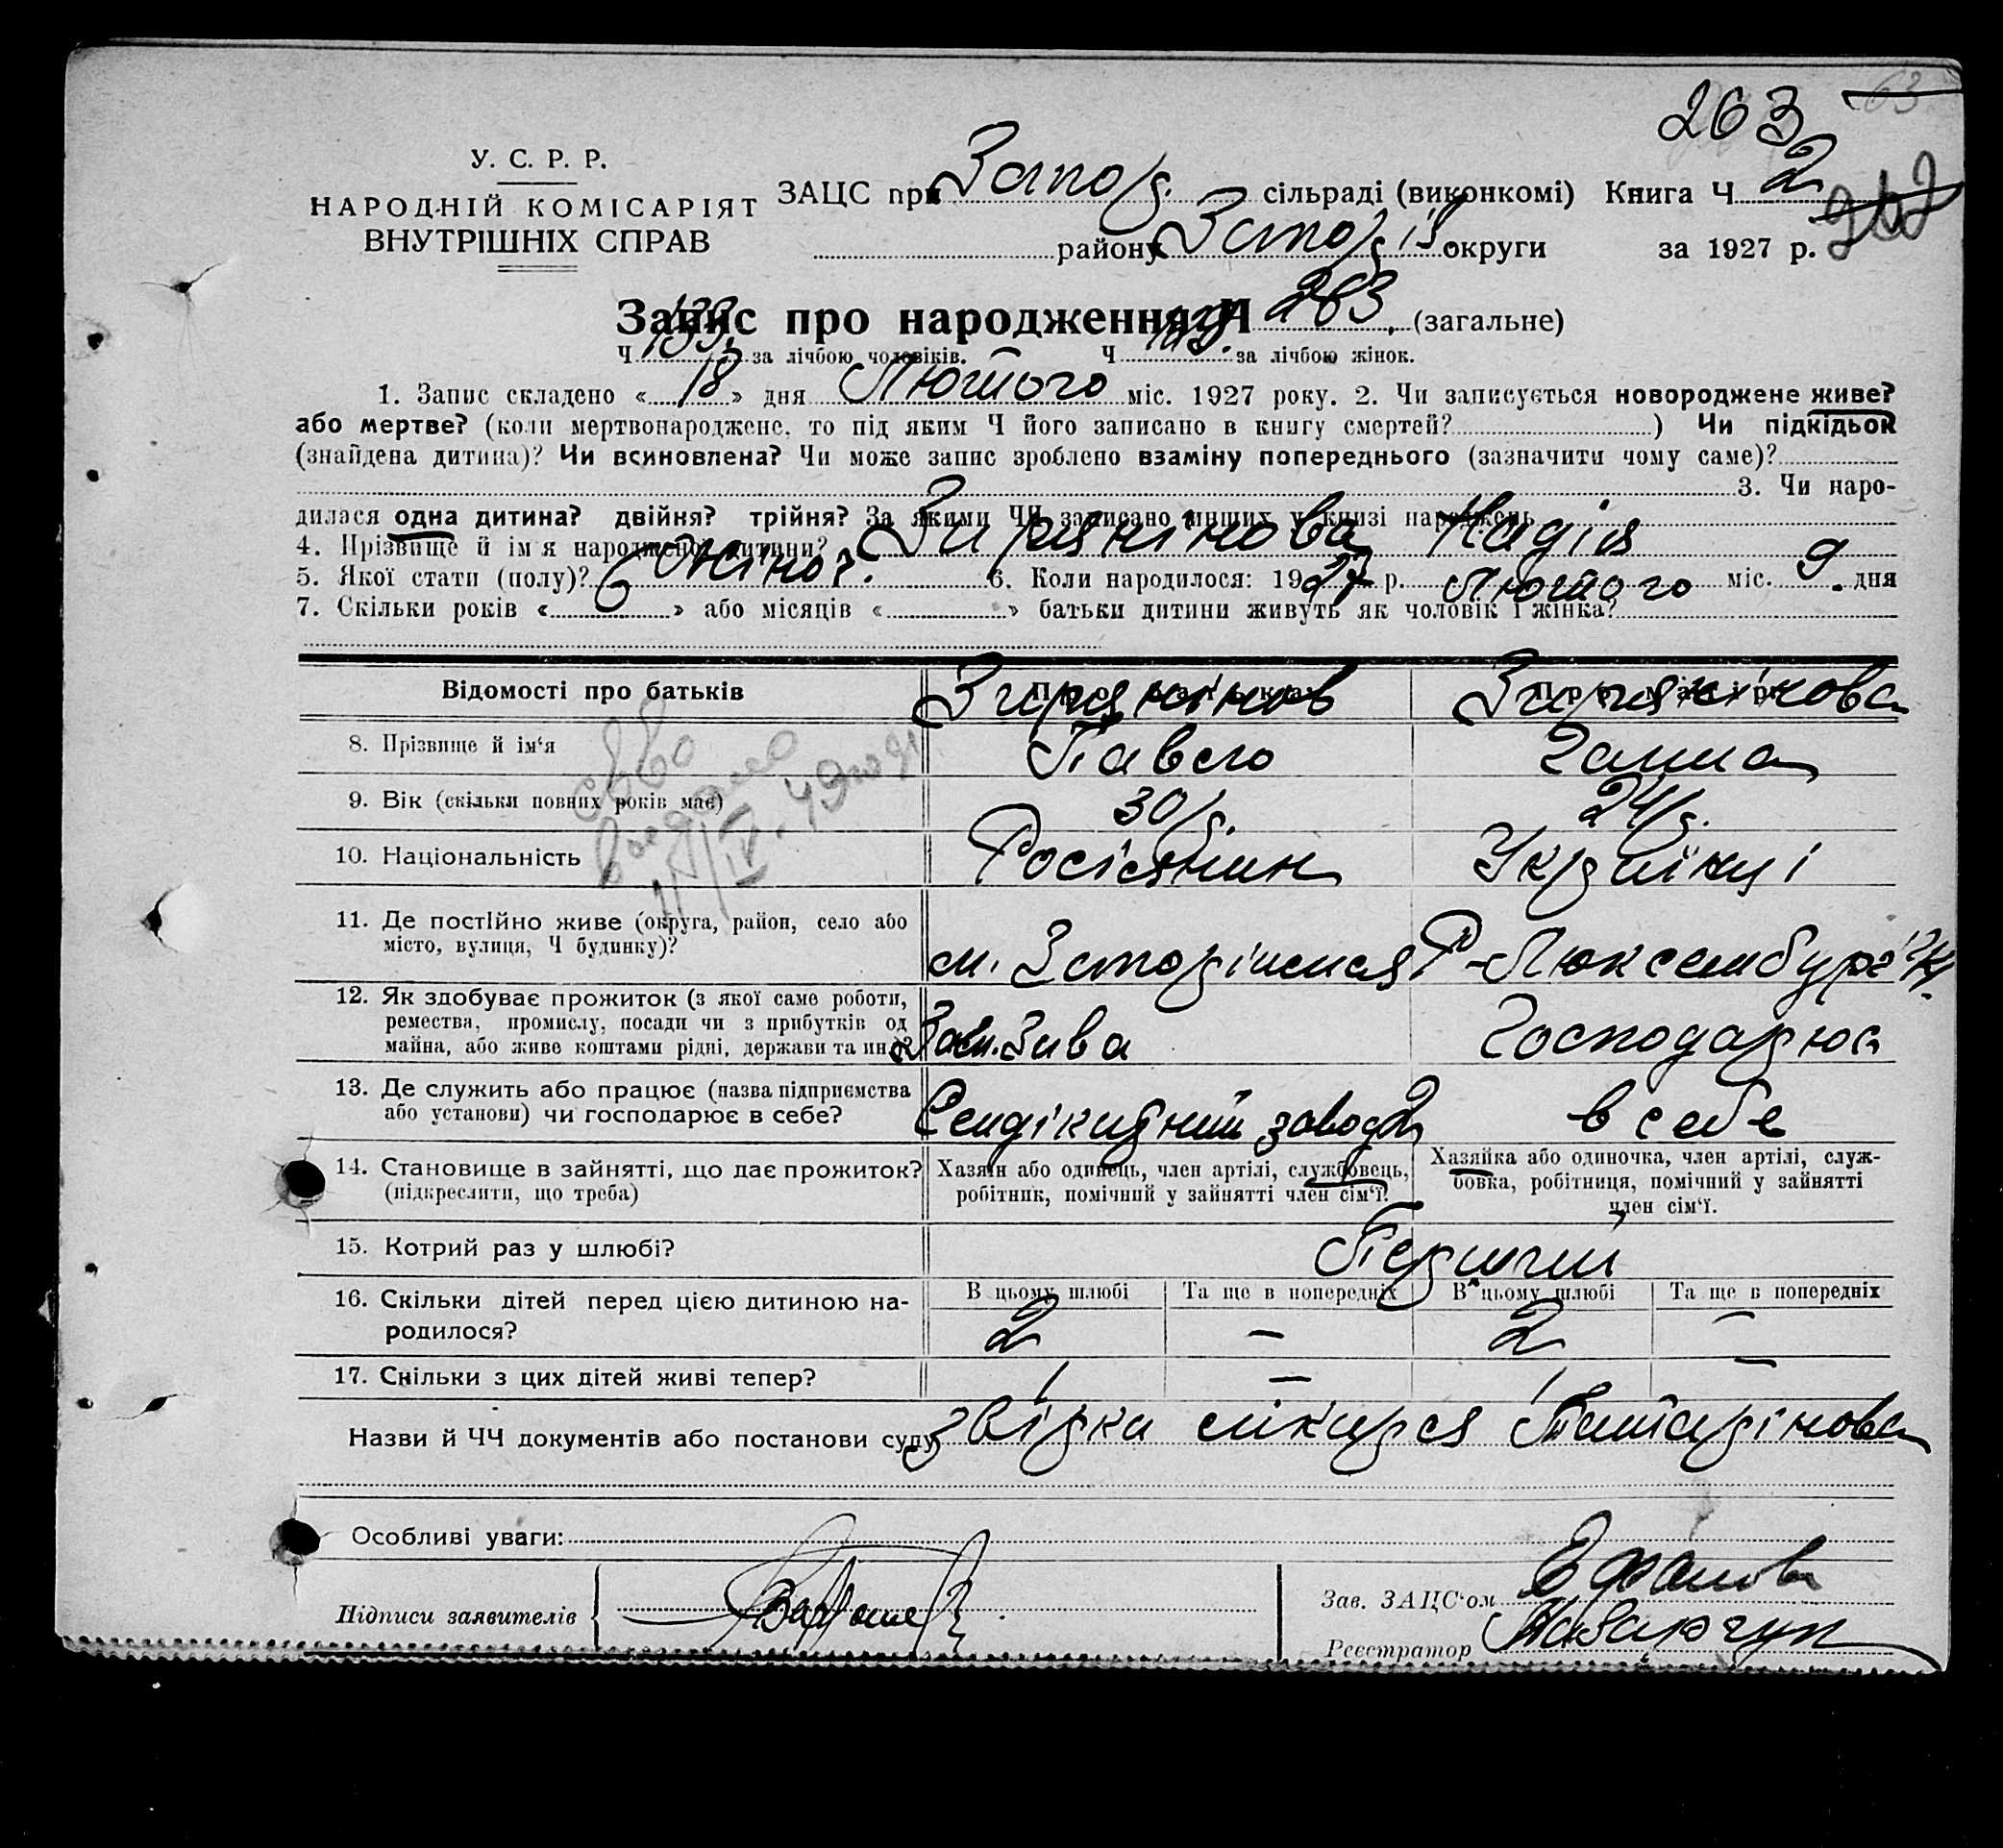 263
У. С. Р. Р.
НАРОДНІЙ КОМІСАРІЯТ
ВНУТРІШНІХ СПРАВ
ЗАЦС при Запор. сільраді (виконкомі) Книга Ч 2
району Запоріз. округи за 1927 р. 262
Запис про народження Ч 263. (загальне)
Ч 133 за лічбою чоловіків. Ч за лічбою жінок.
1. Запис складено « 18 » дня Лютого міс. 1927 року. 2. Чи записується новороджене живе?
або мертве? (коли мертвонароджене, то під яким Ч його записано в книгу смертей? ) Чи підкідьок
(знайдена дитина)? Чи всиновлена? Чи може запис зроблено взаміну попереднього (зазначити чому саме)?
3. Чи наро-
дилася одна дитина? двійня? трійня? За якими ЧЧ записано инших у книзі народжень
4. Прізвище й ім'я народженої дитини? Зирянінова Надія
5. Якої стати (полу)? Жіноч. 6. Коли народилося: 1927 р. Лютого міс. 9 дня
7. Скільки років « 6 » або місяців « » батьки дитини живуть як чоловік і жінка?
Відомості про батьків Про батька Про матір
8. Прізвище й ім'я Зирянінов Павело Зирянінова Галина
9. Вік (скільки повних років має) 30 р. 24 р.
10. Національність Росіянин Українці
11. Де постійно живе (округа, район, село або
місто, вулиця, Ч будинку)? м. Запоріжжя Р-Люксембург
12. Як здобуває прожиток (з якої саме роботи,
ремества, промислу, посади чи з прибутків од
майна, або живе коштами рідні, держави та ин.)? Господарює
13. Де служить або працює (назва підприємства
або установи) чи господарює в себе? завод 2 в себе
14. Становище в зайнятті, що дає прожиток?
(підкреслити, що треба)
Хазяїн або одинець, член артілі, службовець,
робітник, помічний у зайнятті член сім'ї.
Хазяйка або одиночка, член артілі, служ-
бовка, робітниця, помічний у зайнятті
член сім'ї.
15. Котрий раз у шлюбі? Перший
16. Скільки дітей перед цією дитиною на-
родилося?
В цьому шлюбі Та ще в попередніх В цьому шлюбі Та ще в попередніх
2 — 2 —
17. Скільки з цих дітей живі тепер? 1 — 1 —
Назви й ЧЧ документів або постанови суду звірки лікаря
Особливі уваги:
Підписи заявителів
Зав. ЗАЦС'ом
Реєстратор